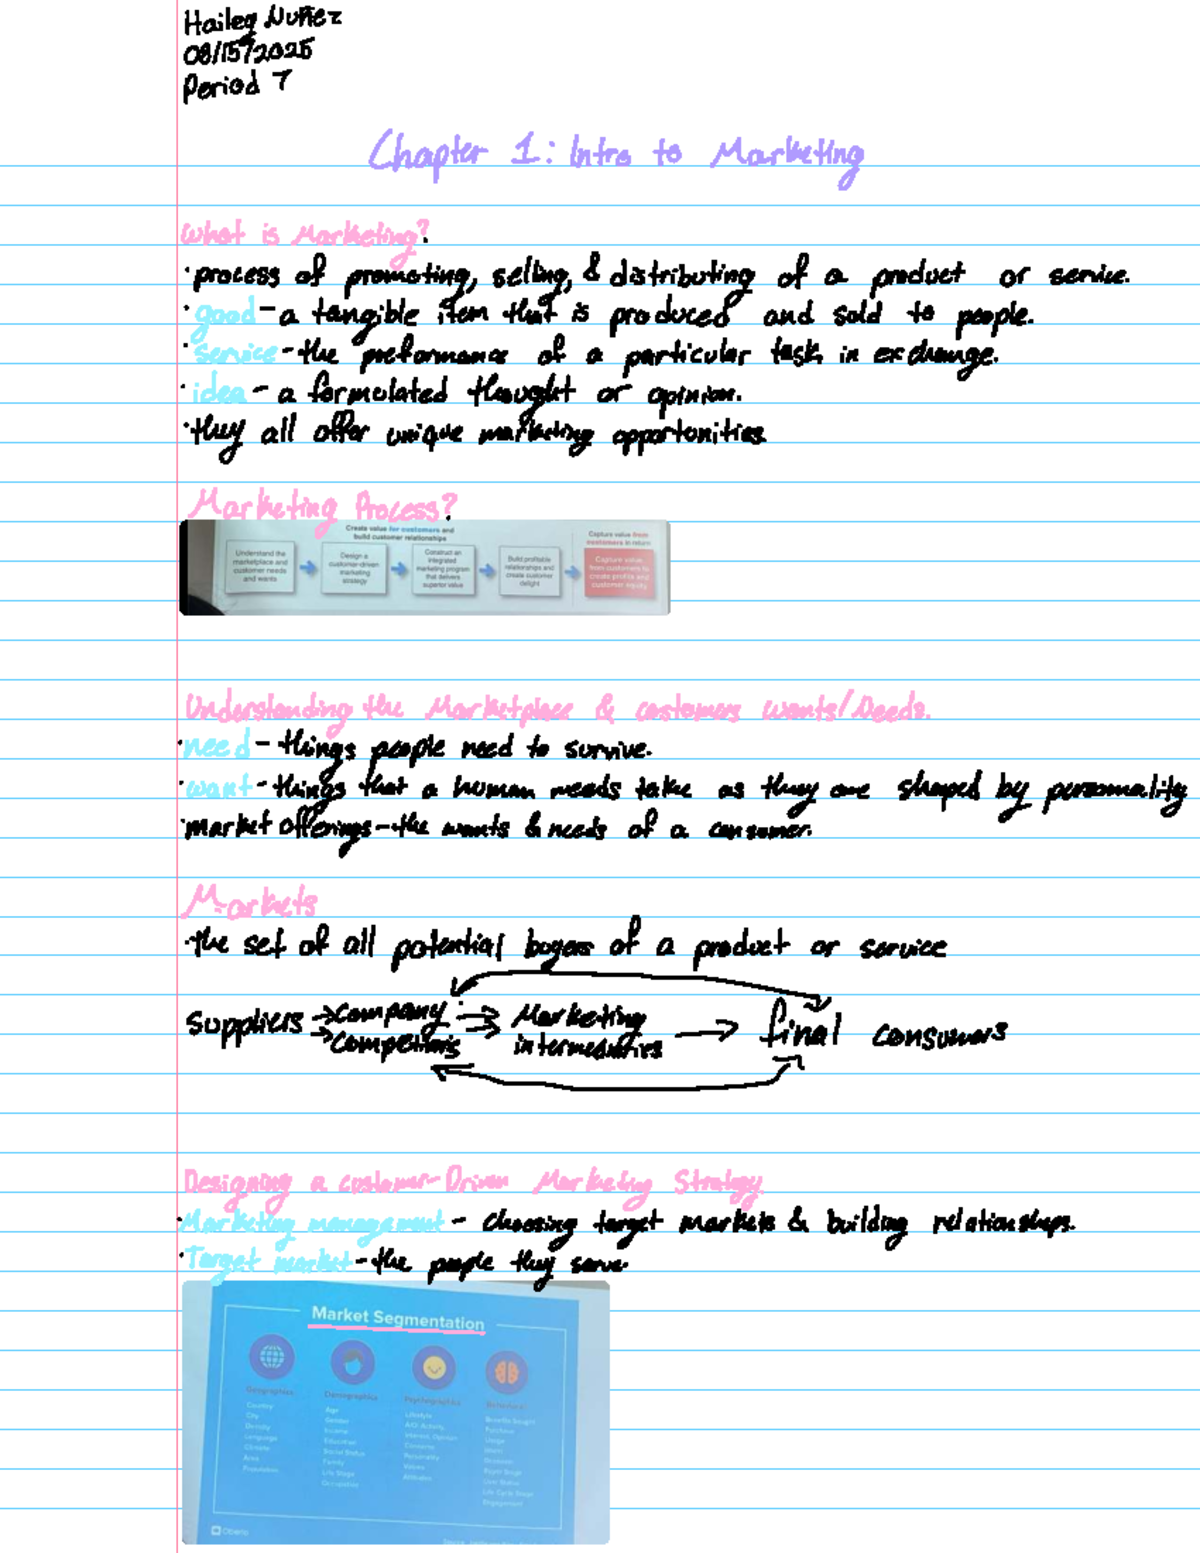 Hailey Nuñez
08/15/2025
Period 7
Chapter 1: Intro to Marketing
What is Marketing?
·process of promoting, selling, & distributing of a product or service.
·good-a tangible item that is produced and sold to people.
·service-the preformance of a particular task in exchange.
·idea-a formulated thought or opinion.
·they all offer unique marketing opportunities
Marketing Process?
Create value for customers and
build customer relationships
Capture value from
customers in return
Understand the
marketplace and
customer needs
and wants
Design a
customer-driven
marketing
strategy
Construct an
integrated
marketing program
that delivers
superior value
Build profitable
relationships and
create customer
delight
Capture value
from customers to
create profits and
customer equity
Understanding the Marketplace & costomers wants/Needs.
·need-things people need to survive.
·want-things that a human needs take as they are shaped by personality
·market offerings-the wants & needs of a consumer.
Markets
·the set of all potential buyers of a product or service
Suppliers → Company → Marketing → final consumers
→ Competitors → intermediaries
Designing a customer-Driven Marketing Strategy
·Marketing management - choosing target markets & building relationships.
·Target market-the people they serve.
Market Segmentation
Geographics
Country
City
Density
Language
Climate
Area
Population
Demographics
Age
Gender
Income
Education
Social Status
Family
Life Stage
Occupation
Psychographics
Lifestyle
AIO: Activity,
Interest, Opinion
Concerns
Personality
Values
Attitudes
Behavioral
Benefits Sought
Purchase
Usage
Intent
Occasion
Buyer Stage
User Status
Life Cycle Stage
Engagement
Oberlo